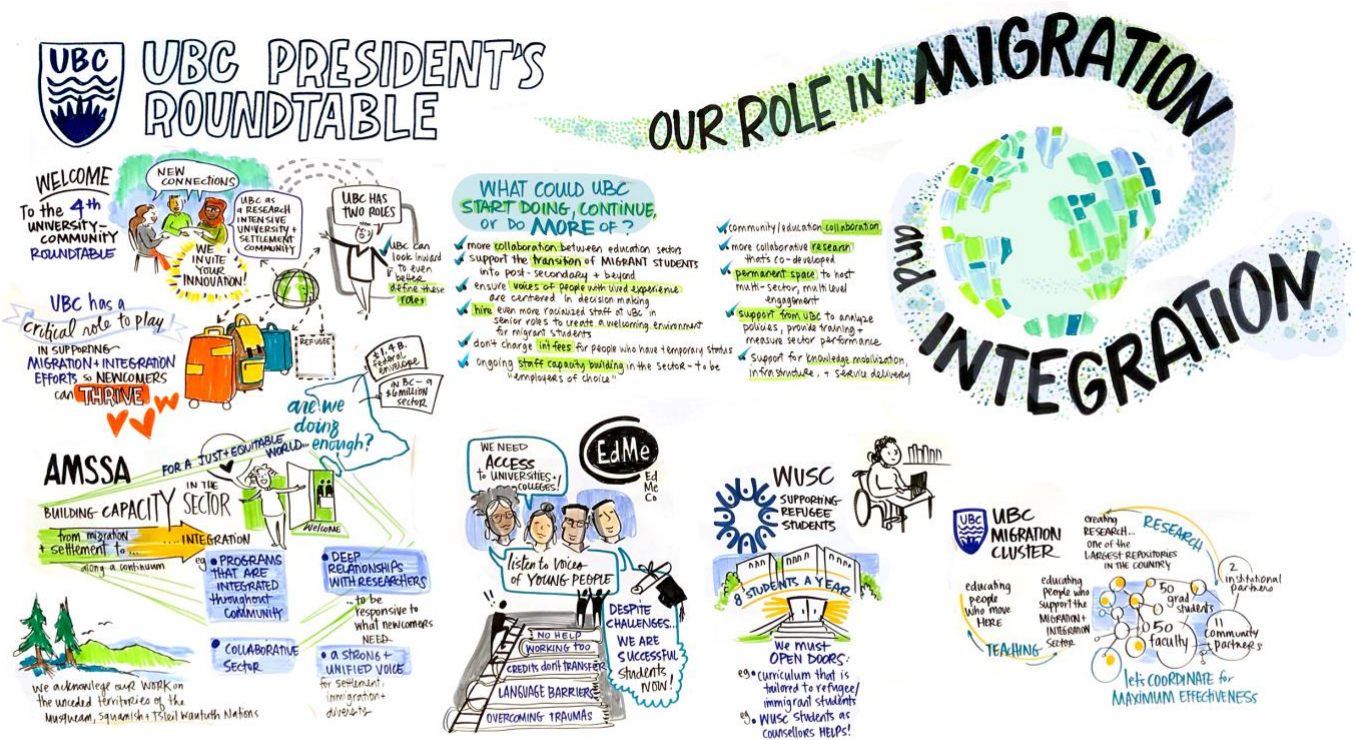 UBC
UBC PRESIDENT'S
ROUNDTABLE
OUR ROLE IN MIGRATION
and
INTEGRATION
WELCOME
To the 4th
UNIVERSITY-
COMMUNITY
ROUNDTABLE
NEW
CONNECTIONS
UBC as
a RESEARCH
INTENSIVE
UNIVERSITY +
SETTLEMENT
COMMUNITY
WE
INVITE
YOUR
INNOVATION!
UBC HAS
TWO ROLES
UBC can
look inward
to even
better
define these
roles
UBC has a
critical role to play
IN SUPPORTING
MIGRATION + INTEGRATION
EFFORTS so NEWCOMERS
can THRIVE
REFUGEE
$1.4 B.
federal
envelope
IN BC - a
$6 million
sector
are we
doing
enough?
WHAT COULD UBC
START DOING, CONTINUE,
OR DO MORE OF?
more collaboration between education sectors
support the transition of MIGRANT STUDENTS
into post-secondary + beyond
ensure voices of people with lived experience
are centered in decision making
hire even more racialized staff at UBC in
senior roles to create a welcoming environment
for migrant students
don't charge int fees for people who have temporary status
ongoing staff capacity building in the sector - to be
"employers of choice"
community/education collaboration
more collaborative research
that's co-developed
permanent space to host
multi-sector, multi level
engagement
support from UBC to analyze
policies, provide training +
measure sector performance
support for knowledge mobilization,
infrastructure, + service delivery
AMSSA
FOR A JUST + EQUITABLE
WORLD...
BUILDING CAPACITY IN THE
SECTOR
WELCOME
from migration
+ settlement to... ...INTEGRATION
along a continuum
eg
• PROGRAMS
THAT ARE
INTEGRATED
throughout
COMMUNITY
• DEEP
RELATIONSHIPS
WITH RESEARCHERS
...to be
responsive to
what newcomers
NEED
• COLLABORATIVE
SECTOR
• a STRONG +
UNIFIED VOICE
for settlement,
immigration +
diversity
We acknowlege our WORK on
the unceded territories of the
Musqueam, Squamish + Tsleil Waututh Nations
WE NEED
ACCESS
to UNIVERSITIES +
COLLEGES!
EdMe
Ed
Me
Co
listen to voices
of YOUNG PEOPLE
!!
NO HELP
WORKING TOO
CREDITS don't TRANSFER
LANGUAGE BARRIERS
OVERCOMING TRAUMAS
DESPITE
CHALLENGES...
WE ARE
SUCCESSFUL
students
NOW!
WUSC
SUPPORTING
REFUGEE
STUDENTS
8 STUDENTS A YEAR
we must
OPEN DOORS:
eg. • curriculum that is
tailored to refugee/
immigrant students
eg. • WUSC students as
counsellors HELPS!
UBC
UBC
MIGRATION
CLUSTER
creating
RESEARCH...
one of the
LARGEST REPOSITORIES
IN THE COUNTRY
RESEARCH
educating
people
who move
HERE
educating
people who
support the
MIGRATION +
INTEGRATION
sector
TEACHING
50
grad
students
50
faculty
2
institutional
partners
11
community
partners
let's COORDINATE for
MAXIMUM EFFECTIVENESS